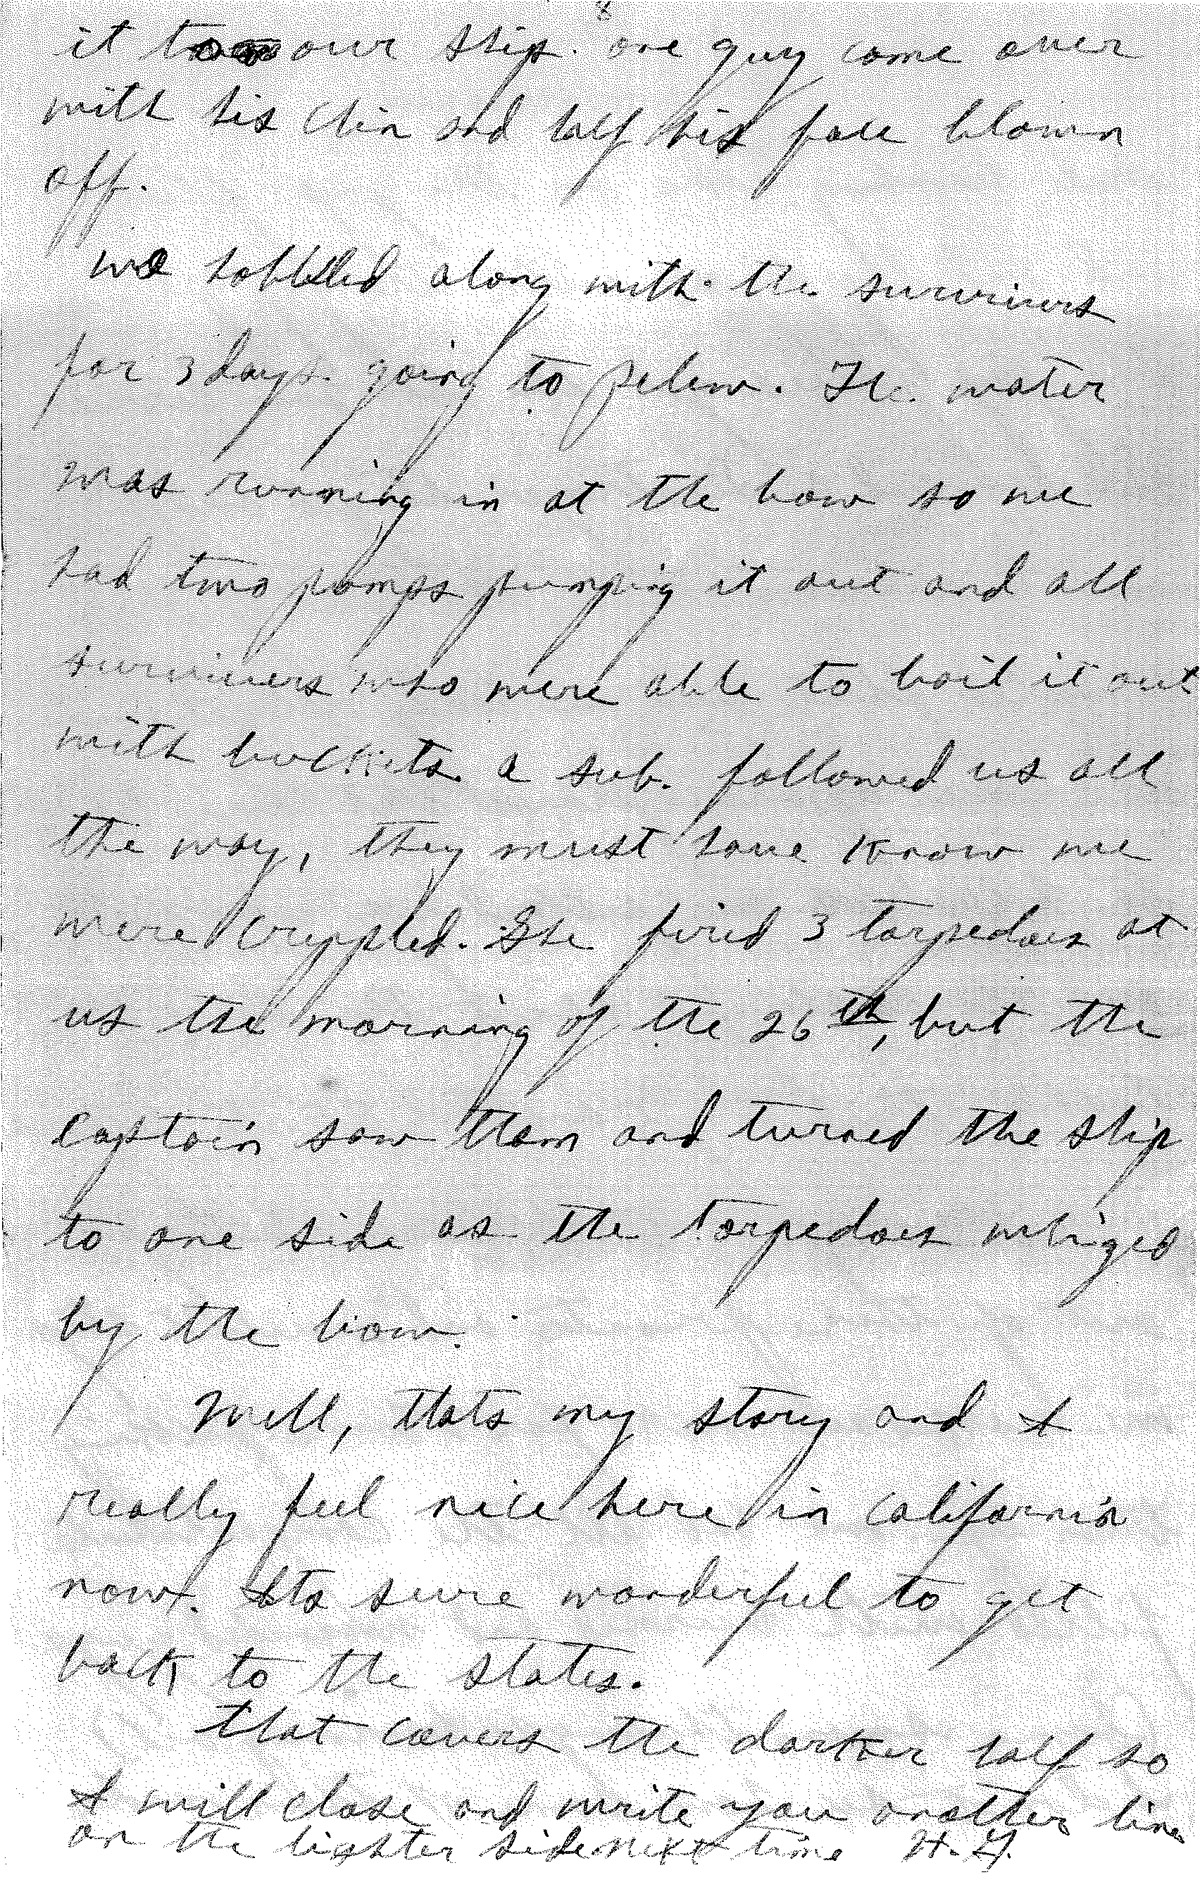 8
it to our ship. one guy come over
with his chin and half his face blown
off.
we hobbled along with the survivers
for 3 days. going to Pelew. The water
was running in at the bow so we
had two pomps pumping it out and all
survivers who were able to bail it out
with buckets. a sub. followed us all
the way, they must have know we
were crippled. She fired 3 torpedoes at
us the morning of the 26th, but the
captain saw them and turned the ship
to one side as the torpedoes whiged
by the bow.
Well, thats my story and I
really feel nice here in California
now. Its sure wonderful to get
back to the states.
that covers the darker half so
I will close and write you another line
on the lighter side next time H.